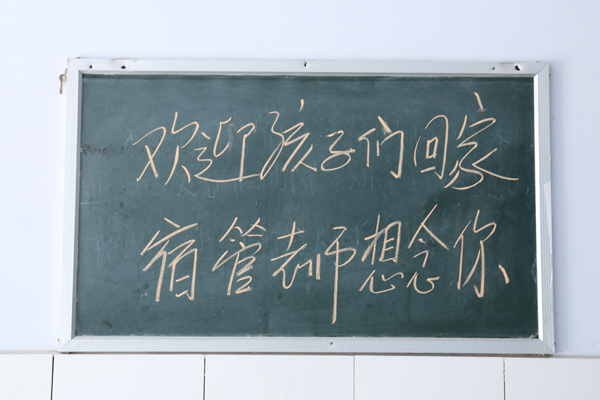 欢迎孩子们回家
宿管老师想念你